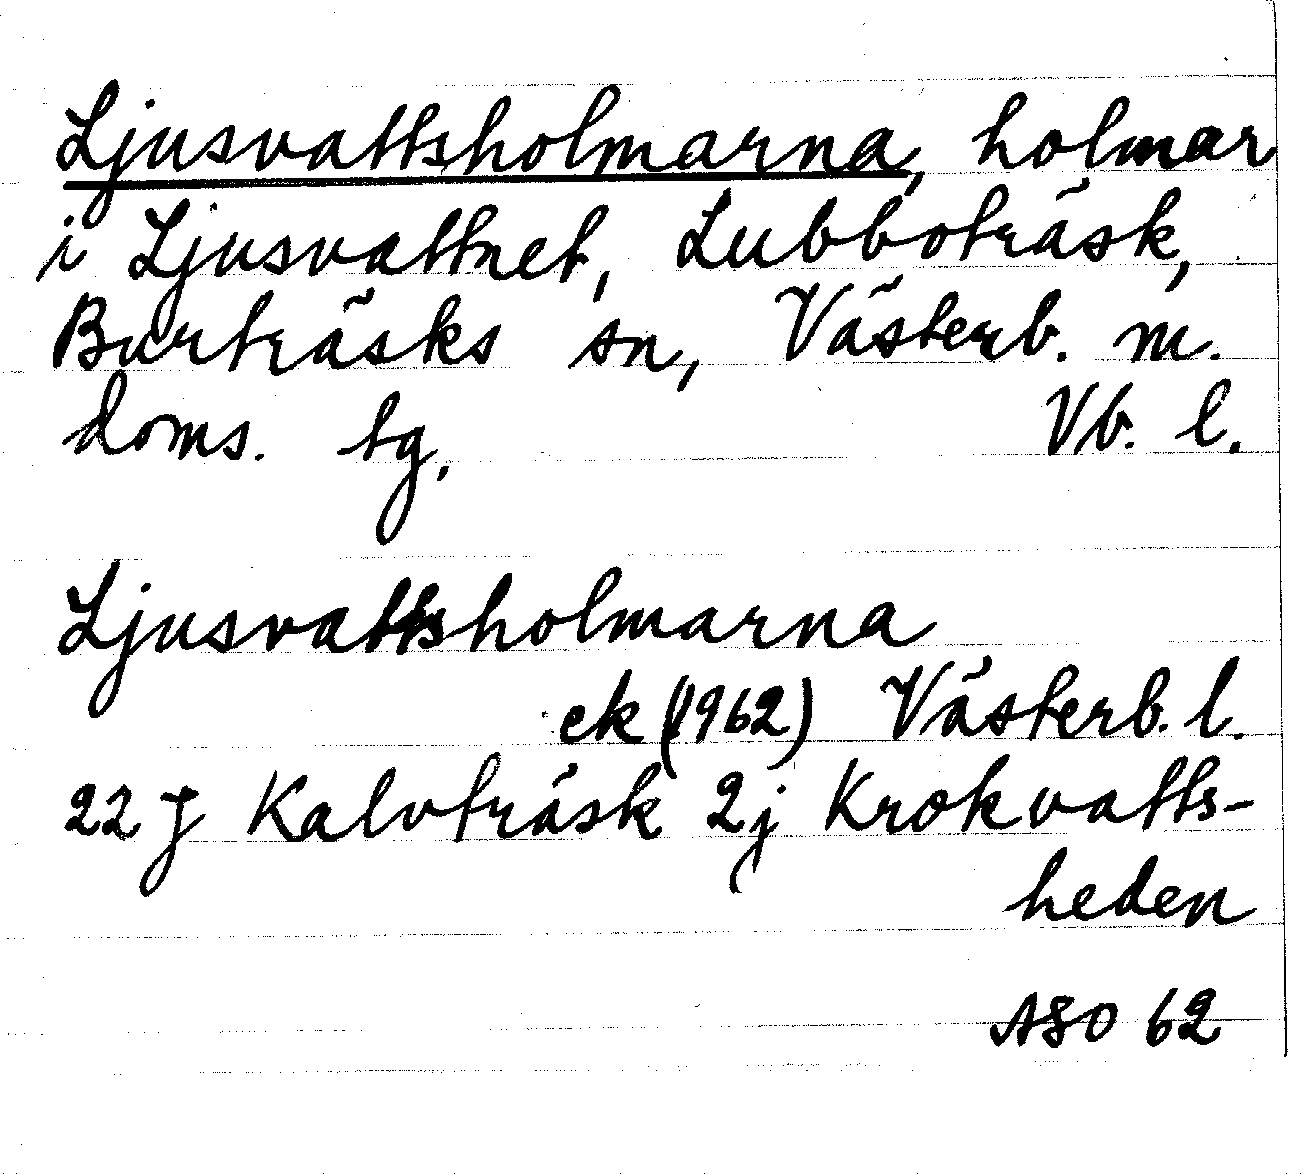 Ljusvattsholmarna, holmar
i Ljusvattnet, Lubboträsk,
Burträsks sn, Västerb. m.
doms. tg. Vb. l.
Ljusvattsholmarna
ek (1962) Västerb. l.
22 J Kalvträsk 2j Krokvatts-
heden
ASO 62